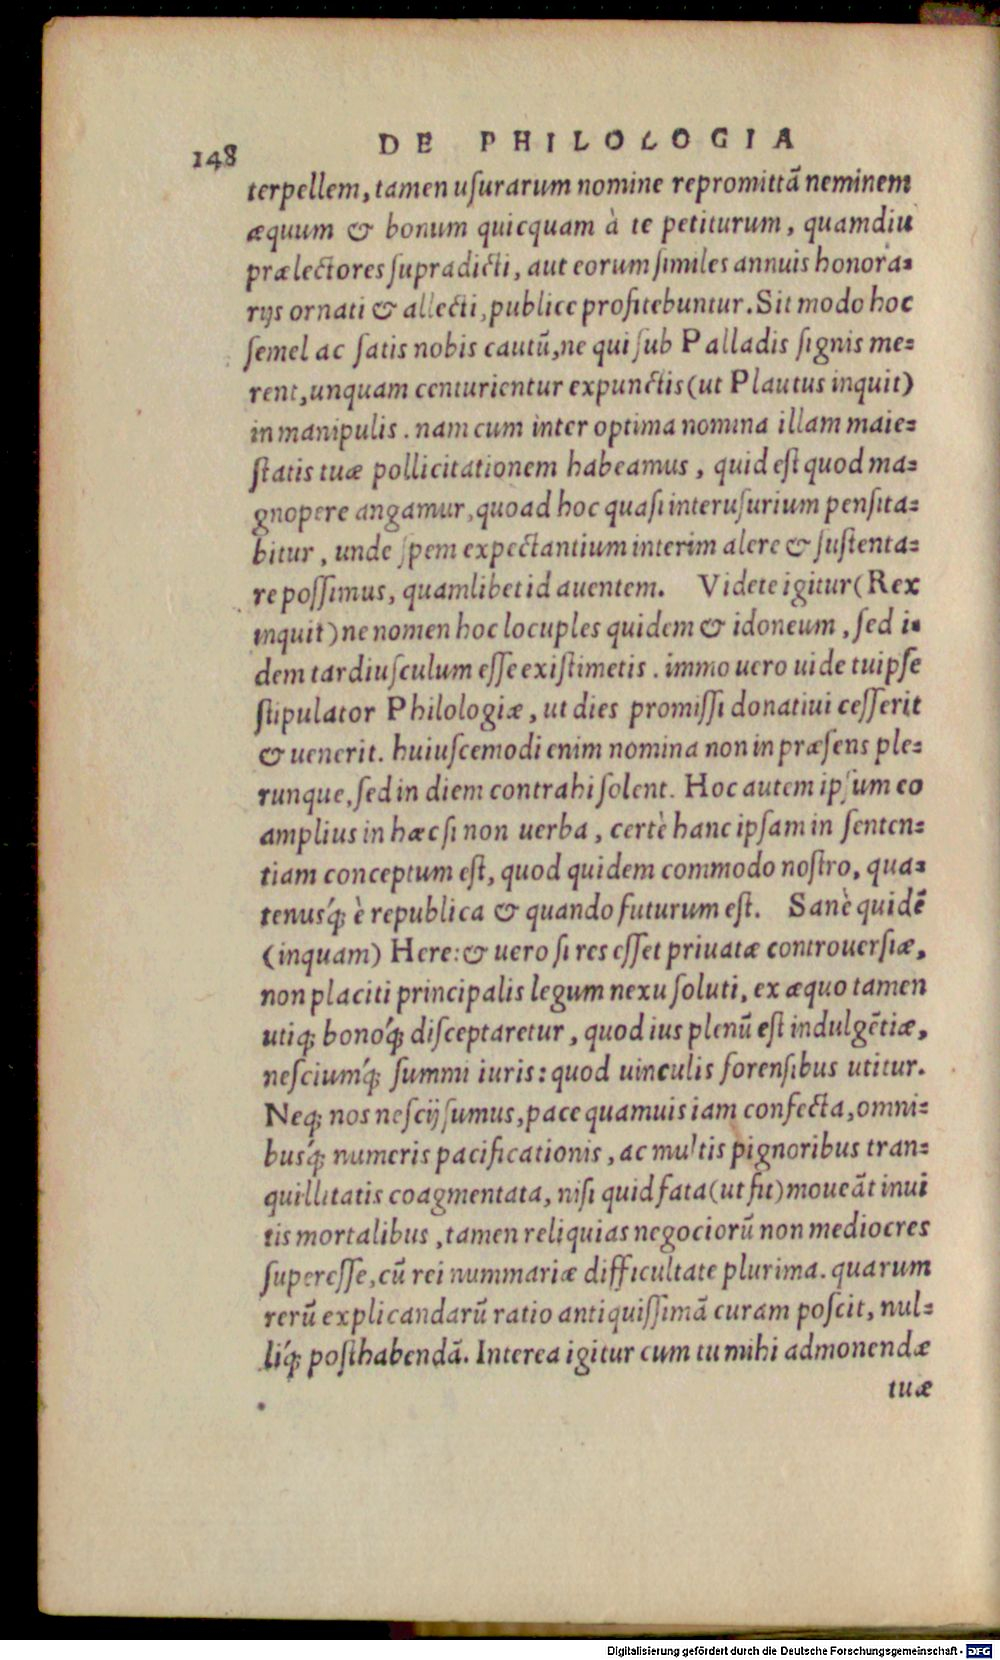 148
DE PHILOLOGIA
terpellem, tamen uſurarum nomine repromittã neminem
æquum & bonum quicquam à te petiturum, quamdiu
prælectores ſupradicti, aut eorum ſimiles annuis honora=
rijs ornati & allecti, publice profitebuntur. Sit modo hoc
ſemel ac ſatis nobis cautũ, ne qui ſub Palladis ſignis me=
rent, unquam centurientur expunctis (ut Plautus inquit)
in manipulis. nam cum inter optima nomina illam maie=
ſtatis tuæ pollicitationem habeamus, quid eſt quod ma=
gnopere angamur, quoad hoc quaſi interuſurium penſita=
bitur, unde ſpem expectantium interim alere & ſuſtenta=
re poſſimus, quamlibet id auentem. Videte igitur (Rex
inquit) ne nomen hoc locuples quidem & idoneum, ſed i=
dem tardiuſculum eſſe exiſtimetis. immo uero uide tuipſe
ſtipulator Philologiæ, ut dies promiſſi donatiui ceſſerit
& uenerit. huiuſcemodi enim nomina non in præſens ple=
runque, ſed in diem contrahi ſolent. Hoc autem ipſum eo
amplius in hæc ſi non uerba, certè hanc ipſam in ſenten=
tiam conceptum eſt, quod quidem commodo noſtro, qua=
tenusq́; è republica & quando futurum eſt. Sanè quidẽ
(inquam) Here: & uero ſi res eſſet priuatæ controuerſiæ,
non placiti principalis legum nexu ſoluti, ex æquo tamen
utiq; bonoq́; diſceptaretur, quod ius plenũ eſt indulgẽtiæ,
neſciumq́; ſummi iuris: quod uinculis forenſibus utitur.
Neq; nos neſcij ſumus, pace quamuis iam confecta, omni=
busq́; numeris pacificationis, ac multis pignoribus tran=
quillitatis coagmentata, niſi quid fata (ut fit) moueãt inui
tis mortalibus, tamen reliquias negociorũ non mediocres
ſupereſſe, cũ rei nummariæ difficultate plurima. quarum
rerũ explicandarũ ratio antiquiſſimã curam poſcit, nul=
liq́; poſthabendã. Interea igitur cum tu mihi admonendæ
tuæ
Digitalisierung gefördert durch die Deutsche Forschungsgemeinschaft - DFG